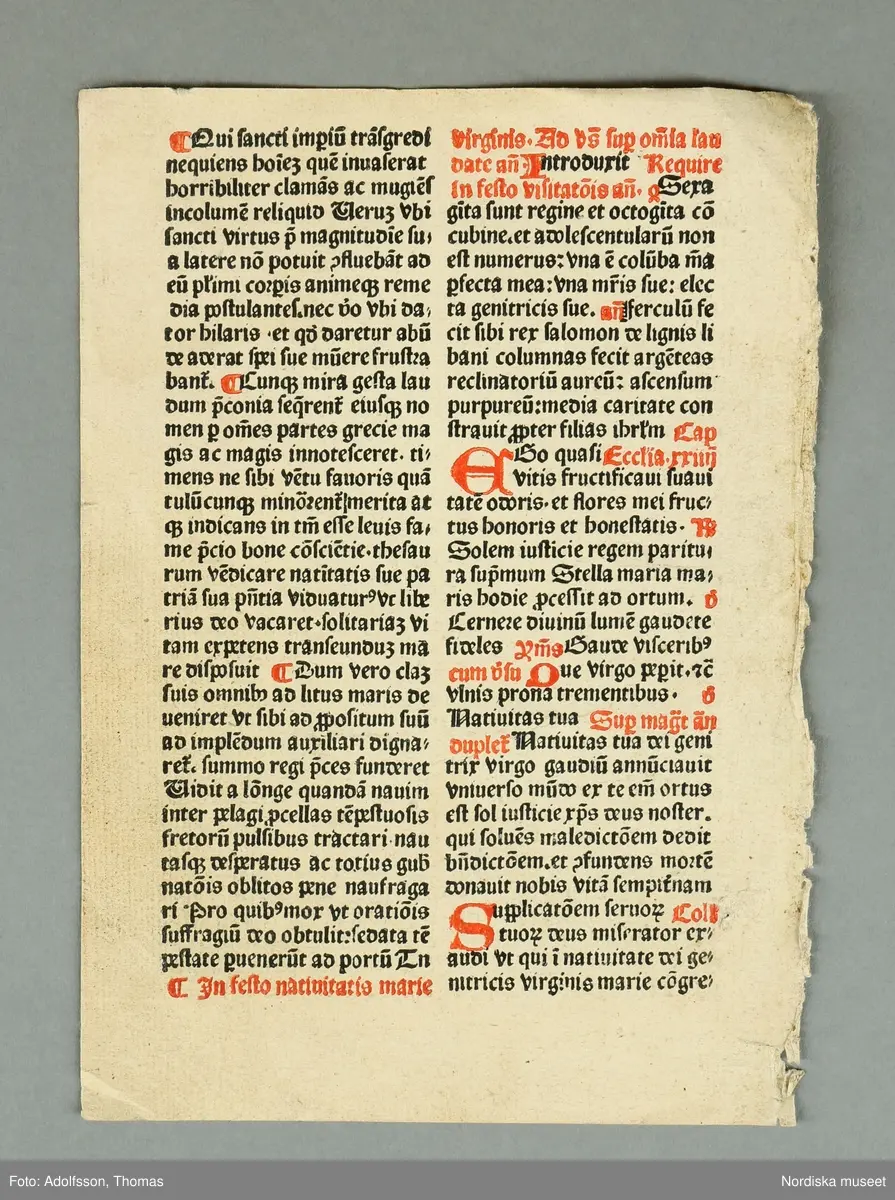 ¶Qui sancti impiū trāsgredi
nequiens hoīeꝫ quē inuaserat
horribiliter clamās ac mugiēs
incolumē reliquid Ueruꝫ vbi
sancti virtus p̄ magnitudīe su⸗
a latere nō potuit ꝯfluebāt ad
eū pl̄imi corꝑis animeqꝫ reme
dia postulantes.nec v̄o vbi da⸗
tor hilaris .et qđ daretur abū
de aderat spei sue mūere frustra
banť. ¶Cunqꝫ mira gesta lau
dum p̄conia seq̄renť eiusqꝫ no
men ꝑ om̄es partes grecie ma
gis ac magis innotesceret. ti⸗
mens ne sibi vētu fauoris quā
tulūcunqꝫ minōrenť merita at
qꝫ indicans in tm̄ esse leuis fa⸗
me p̄cio bone cōsciētie.thesau
rum vēdicare natītatis sue pa
triā sua pn̄tia viduaturꝰ vt libe
rius deo vacaret.solitariaꝫ vi
tam expetens transeunduꝫ ma
re disposuit ¶Dum vero claꝫ
suis omnibꝰ ad litus maris de
ueniret vt sibi ad ꝓpositum suū
ad implēdum auxiliari digna⸗
reť. summo regi p̄ces funderet
Uidit a lōnge quandā nauim
inter pelagi ꝓcellas tēpestuosis
fretorū pulsibus tractari nau
tasqꝫ desperatus ac totius gub̄
natōis oblitos pene naufraga
ri Pro quibꝰ mox vt oratiōis
suffragiū deo obtulit:sedata tē
pestate ꝑuenerūt ad portū Tu
¶ In festo natiuitatis marie
virginis. Ad vs̄ suꝑ om̄ia lau
date an̄. Introduxit Require
in festo visitatōis an̄. Sexa
gīta sunt regine et octogīta cō
cubine.et adolescentularū non
est numerus: vna ē colūba m̄a
ꝑfecta mea: vna mr̄is sue: elec
ta genitricis sue. an̄ Ferculū fe
cit sibi rex salomon de lignis li
bani columnas fecit argēteas
reclinatoriū aureū: ascensum
purpureū:media caritate con
strauit ꝓpter filias ihrl̄m Cap
EGo quasi Ecclīa.xxiiij
vitis fructificaui suaui
tatē odoris. et flores mei fruc⸗
tus honoris et honestatis. ℟
Solem iusticie regem paritu⸗
ra sup̄mum Stella maria ma⸗
ris hodie ꝓcessit ad ortum. ℣
Cernere diuinū lumē gaudete
fideles ymꝰ Gaude visceribꝰ
cum v̄su Que virgo peꝑit.⁊c̄
vlnis prona trementibus. ℣
Natiuitas tua Suꝑ maḡt an̄
dupleť Natiuitas tua dei geni
trix virgo gaudiū annūciauit
vniuerso mūdo ex te em̄ ortus
est sol iusticie xp̄s deus noster.
qui soluēs maledictōem dedit
bn̄dictōem.et ꝯfundens mortē
donauit nobis vitā sempiťnam
Supplicatōem seruoꝝ Coll'
tuoꝝ deus miserator ex⸗
audi vt qui ī natiuitate dei ge⸗
nitricis virginis marie cōgre⸗
Foto: Adolfsson, Thomas
Nordiska museet